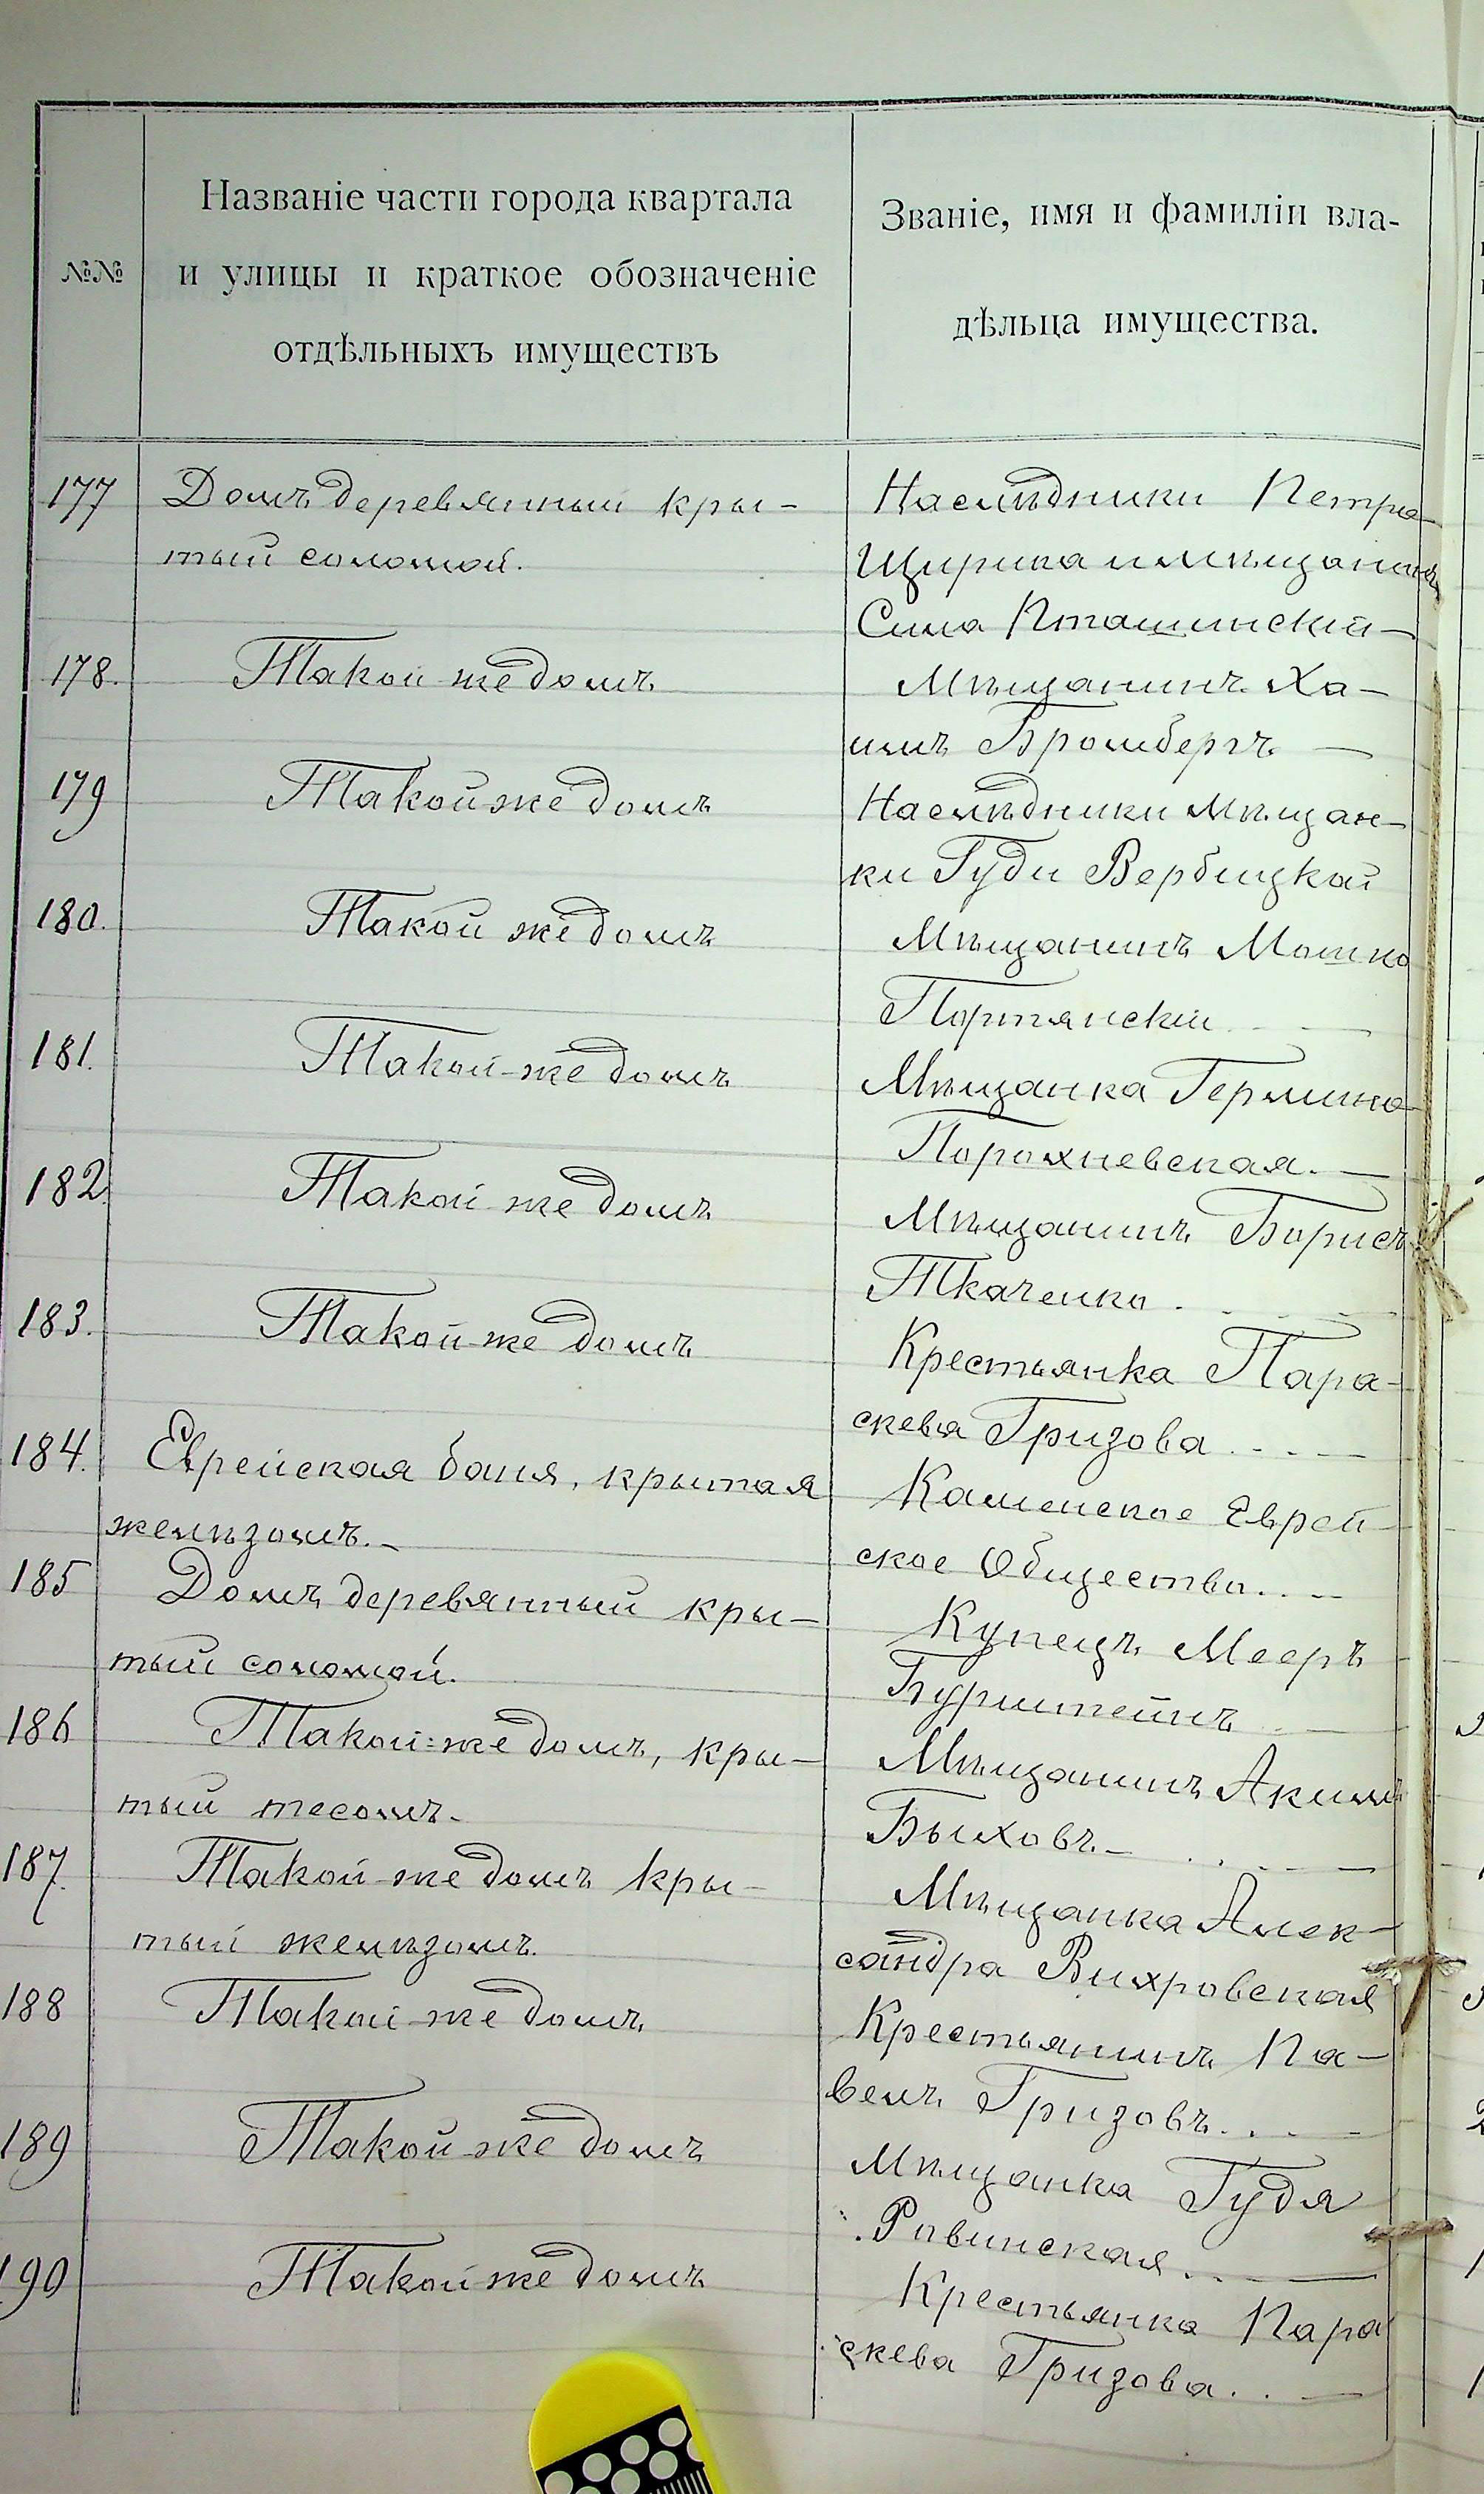 №№
Названіе части города квартала
и улицы и краткое обозначеніе
отдѣльныхъ имуществъ
Званіе, имя и фамиліи вла-
дѣльца имущества.
177 Домъ деревянный кры-
тый соломой.
Наслѣдники Петра
Щирика и мѣщанинъ
Сима Пташинскій
178. Такой-же домъ
Мѣщанинъ Ха-
имъ Бромбергъ
179 Такой же домъ
Наслѣдники мѣщан-
ки Гуди Вербицкой
180. Такой же домъ
Мѣщанинъ Мошко
Портянскій
181. Такой-же домъ
Мѣщанка Гермина
Порохневская.
182. Такой-же домъ
Мѣщанинъ Борисъ
Ткаченко
183. Такой-же домъ
Крестьянка Пара-
скева Гризова
184. Еврейская баня, крытая
желѣзомъ.
Каменское Еврей-
ское Общество
185 Домъ деревянный кры-
тый соломой.
Купецъ Мееръ
Бурштейнъ
186 Такой-же домъ, кры-
тый тесомъ.
Мѣщанинъ Акимъ
Быховъ
187. Такой-же домъ кры-
тый желѣзомъ.
Мѣщанка Алек-
сандра Вихровская
188 Такой-же домъ
Крестьянинъ Па-
велъ Гризовъ
189 Такой-же домъ
Мѣщанка Гудя
Равинская
190 Такой же домъ
Крестьянка Пара
скева Гризова